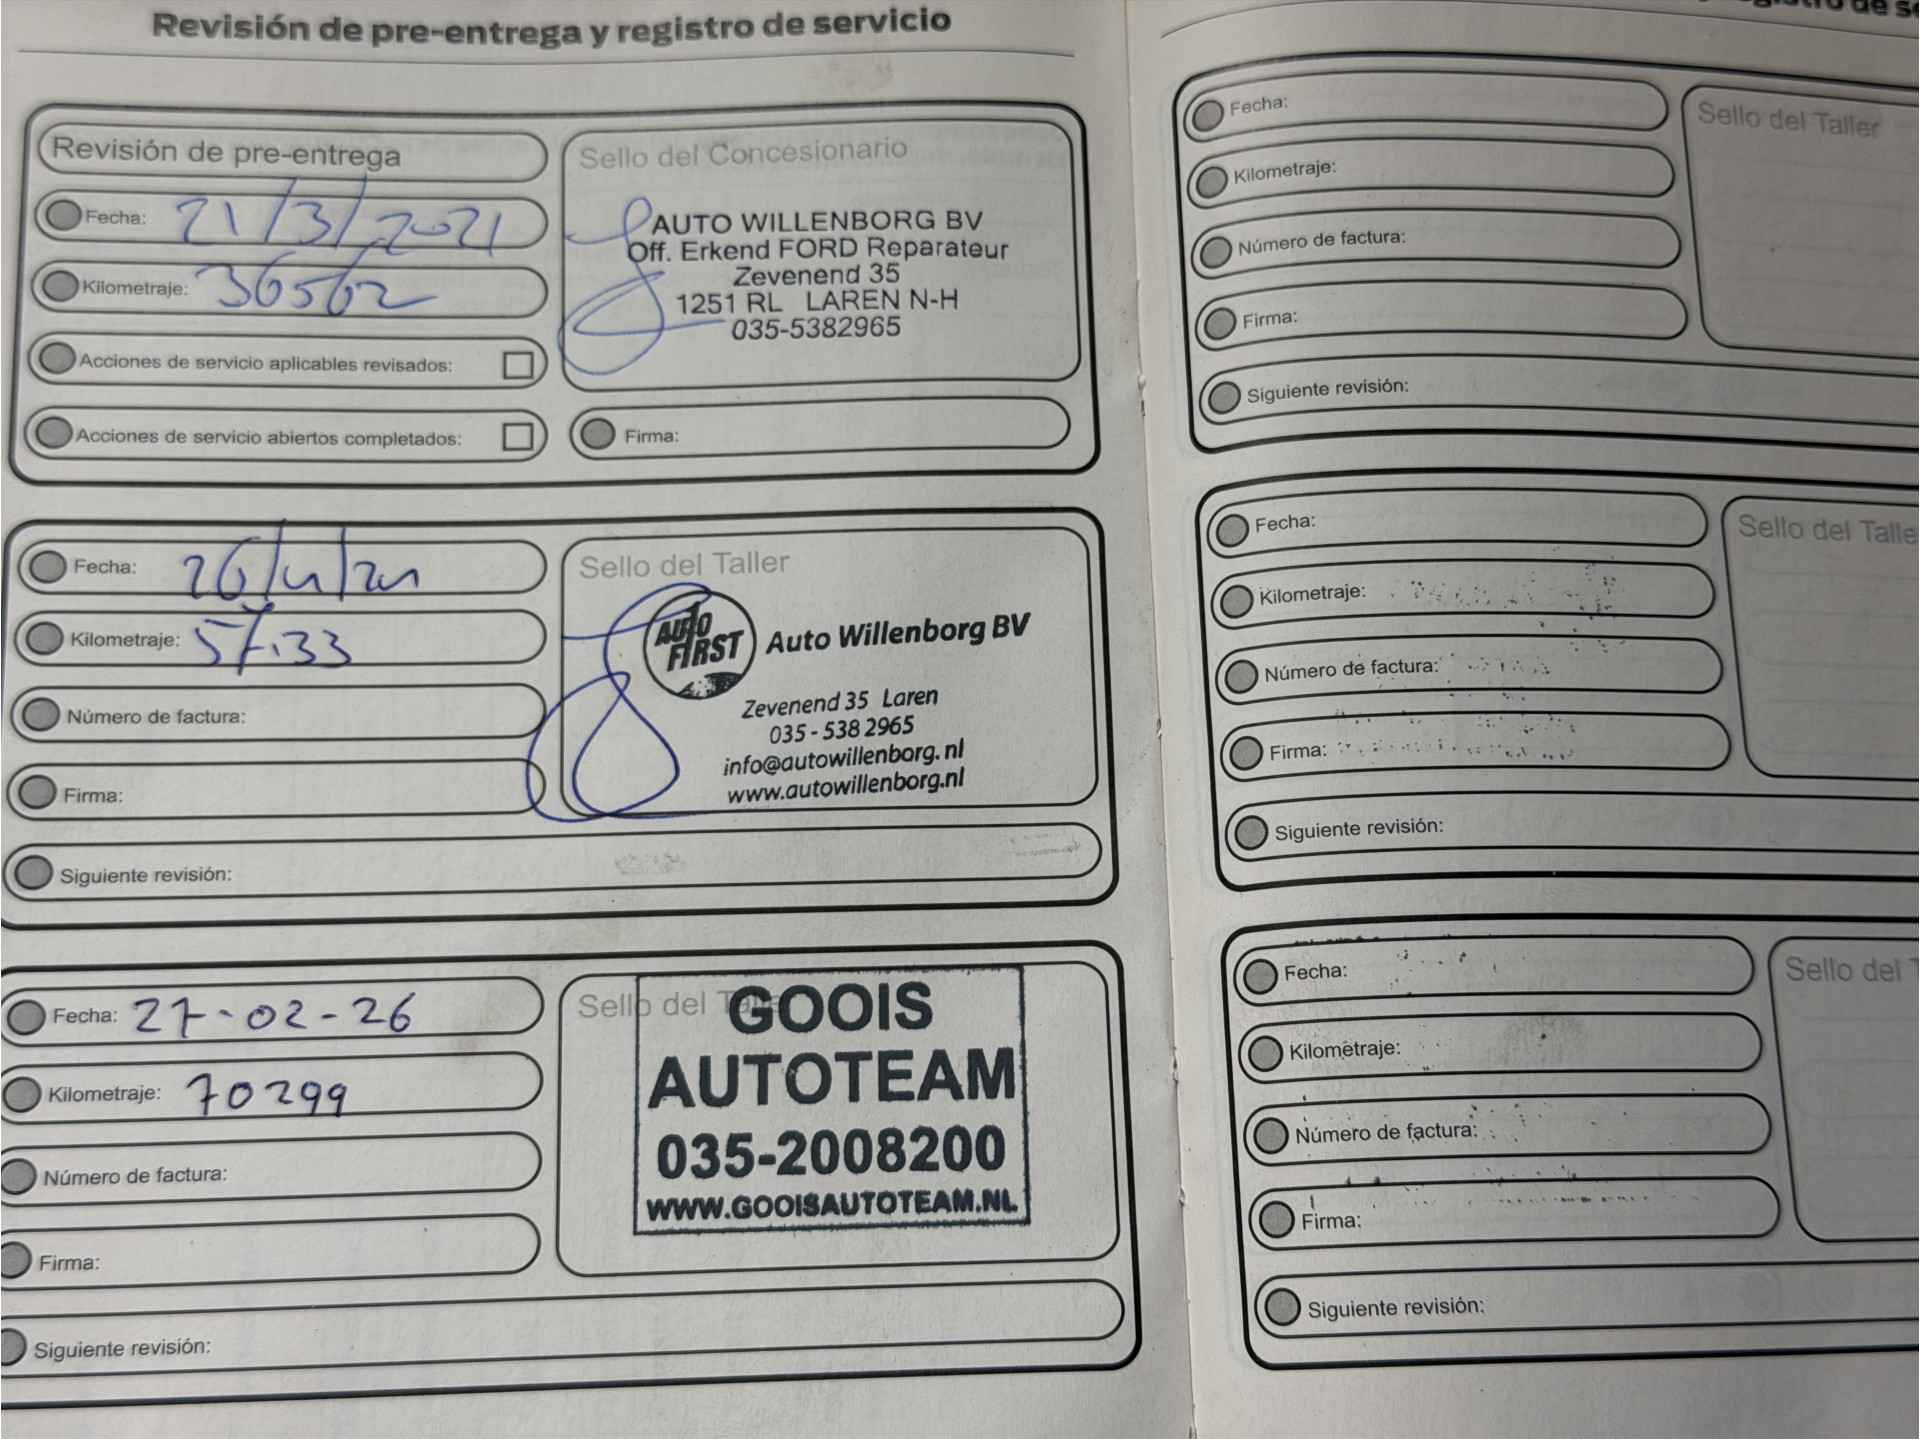 Revisión de pre-entrega y registro de servicio
Revisión de pre-entrega
Fecha: 21/3/2021
Kilometraje: 36562
Acciones de servicio aplicables revisados:
Acciones de servicio abiertos completados:
Sello del Concesionario
AUTO WILLENBORG BV
Off. Erkend FORD Reparateur
Zevenend 35
1251 RL LAREN N-H
035-5382965
Firma:
Fecha:
Kilometraje:
Número de factura:
Firma:
Siguiente revisión:
Sello del Taller
AUTO FIRST
Auto Willenborg BV
Zevenend 35 Laren
035 - 538 2965
info@autowillenborg.nl
www.autowillenborg.nl
Fecha: 27-02-26
Kilometraje: 70299
Número de factura:
Firma:
Siguiente revisión:
Sello del
GOOIS
AUTOTEAM
035-2008200
WWW.GOOISAUTOTEAM.NL
Fecha:
Kilometraje:
Número de factura:
Firma:
Siguiente revisión:
Sello del Taller
Fecha:
Kilometraje:
Número de factura:
Firma:
Siguiente revisión:
Sello del Talle
Fecha:
Kilometraje:
Número de factura:
Firma:
Siguiente revisión:
Sello del